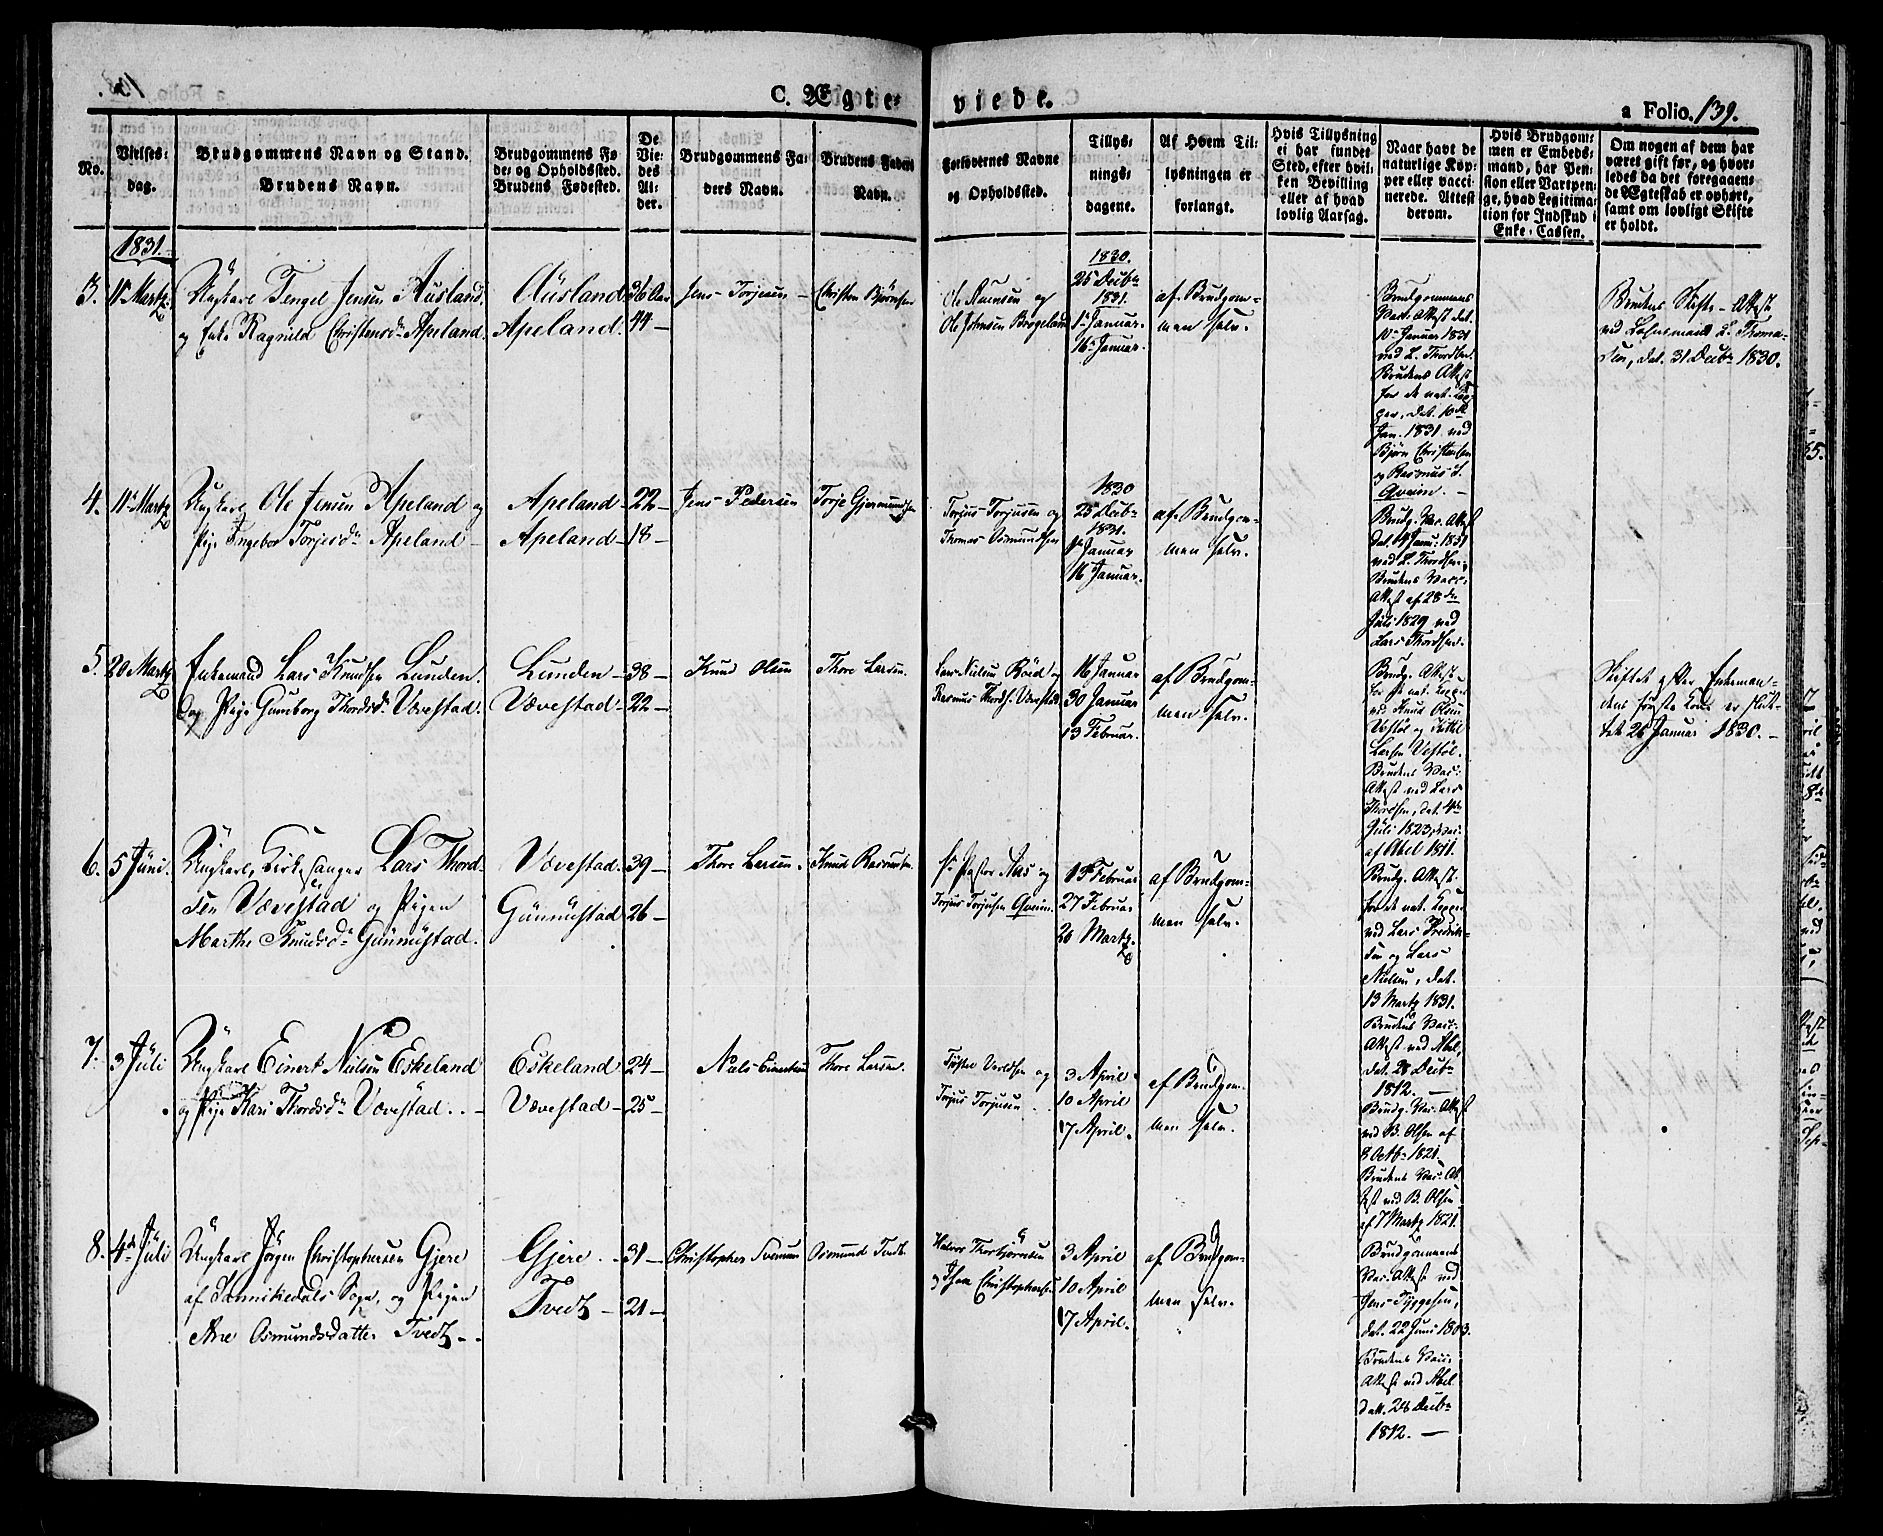 C. Ægte-
viede.
a Folio. 139.
No.
Vielses-
dag.
Brudgommens Navn og Stand.
Brudens Navn.
Brudgommens Fø-
de- og Opholdssted.
Brudens Fødested.
De
Vie-
des
Al-
der.
Brudgommens Fa-
ders Navn.
Brudens Faders
Navn.
Forlovernes Navne
og Opholdssted.
Tillys-
nings-
dagene.
Af Hvem Til-
lysningen er
forlangt.
Hvis Tillysning
ei har fundet
Sted, efter hvil-
ken Bevilling
eller af hvad
lovlig Aarsag.
Naar havt de
naturlige Kop-
per eller vacci-
nerede. Attest
derom.
Hvis Brudgom-
men er Embeds-
mand, har Pen-
sion eller Vartpen-
ge, hvad Legitima-
tion for Indskud i
Enke-Cassen.
Om nogen af dem har
været gift før, og hvor-
ledes da det foregaaen-
de Ægteskab er ophørt,
samt om lovligt Skifte
er holdt.
1831.
3. 11 Martz
Ungkarl Tengel Jensen Ausland
og Enke Ragnild Christensdr Apeland.
Ausland
Apeland.
36 Aar
44 —
Jens Torjesen —
Christen Bjørnsen
Ole Jensen Brogeland
1830.
25 Decbr
1831.
1 Januar.
16 Januar.
af Brudgom-
men selv.
Brudgommens
Vac. Attest dat.
10 Januar 1831
ved L. Thordsen.
Brudens Attest
for de nat. Kop-
per, dat. 10de
Jan. 1831 ved
Bjørn Christensen
og Rasmus L.
Qveim. —
Brudens Skifte-Attest
ved Lehnsmand L. Thoma-
sen, dat. 31 Decbr 1830.
4. 11 Martz
Ungkarl Ole Jensen Apeland og
Pige Ingebor Torjesdr Apeland —
Apeland —
Apeland —
22 —
18 —
Jens Pedersen
Torje Gjermundsen
Torjus Torjusen og
Thomas Osmundsen
1830
25 Decbr
1831.
1 Januar
16 Januar.
af Brudgom-
men selv.
Brudg. Vac. Attest
ved L. Thordsen.
Brudens Vacc.
Attest af 28de
Juli 1829 ved
Lars Thordsen.
5. 20 Martz
Enkemand Lars Knudsen Lunden.
og Pige Gunborg Thordsdr Vævestad.
Lunden —
Vævestad —
38 —
22 —
Knud Olsen
Thore Larsen.
16 Januar
30 Januar
13 Februar.
af Brudgom-
men selv.
Brudg. Attest
for de nat. Kopper
ved Knud Olsen
Vestøl og Kittel
Larsen Vestøl.
Brudens Vac.
Attest ved Lars
Thordsen, dat. 4de
Juli 1823,
af Abel 1811.
Skiftet efter Enkeman-
dens første Kone er slut-
tet 26 Januar 1830. —
6. 5 Juni.
Ungkarl, Kirkesanger Lars Thord-
sen Vævestad og Pigen
Marthe Knudsdr Gunnestad.
Vævestad.
Gunnestad
39 —
26 —
Thore Larsen.
Knud Rasmussen
Hr Pastor Aas og
Torjus Torjusen Qveim.
13 Februar
27 Februar
20 Martz.
af Brudgom-
men selv.
Brudg. Attest.
for de nat. Kopper
ved Lars Fredrik-
sen og Lars
Nielsen, dat.
13 Martz 1831.
Brudens Vacc-
Attest ved Abel,
dat. 28 Decbr
1812. —
7. 3 Juli
Ungkarl Einert Nielsen Eskeland
og Pige Kari Thordsdr Vævestad. —
Eskeland
Vævestad —
24 —
25 —
Niels Einertsen
Thore Larsen.
Torjus Torjusen
3 April.
10 April
17 April.
af Brudgom-
men selv.
Brudg. Vac. Attest
ved B. Olsen af
8 Octbr 1821.
Brudens Vac. At-
test ved B. Olsen
af 7 Martz 1821.
8. 4de Juli
Ungkarl Jørgen Christophersen Gjere
af Sannikedals Sogn, og Pigen
Ane Osmundsdatter Tvedt —
Gjere. —
Tvedt —
31 —
21 —
Christopher Svensen
Osmund Tvedt
Halvor Thorbjørnsen
og Christophersen
3 April
10 April
17 April.
af Brudgom-
men selv.
Brudgommens
Vac. Attest ved
Jens Tyggesen,
dat. 22 Juni 1803.
Brudens Vacc.
Attest ved Abel
dat. 28 Decbr
1812. —